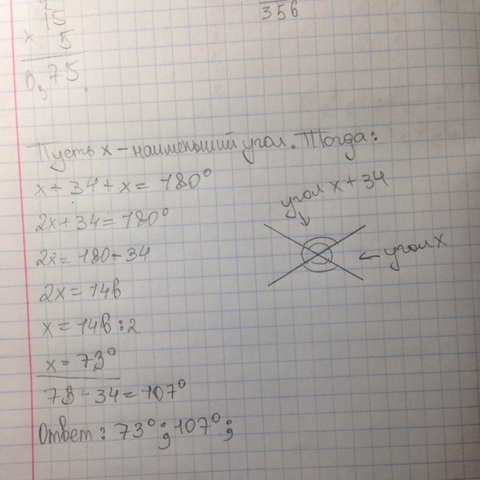 356
15
x 5
0,75
Пусть x - наименьший угол. Тогда:
x + 34 + x = 180°
2x + 34 = 180°
2x = 180 - 34
2x = 146
x = 146 : 2
x = 73°
73 - 34 = 107°
Ответ: 73°; 107°;
угол x + 34
угол x